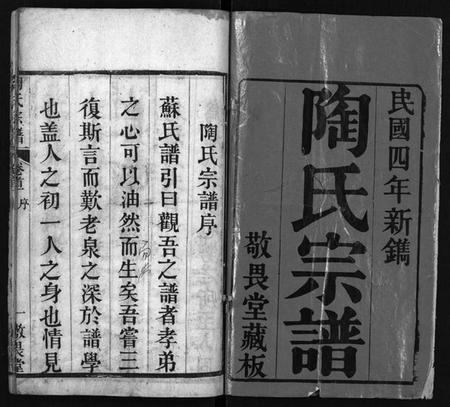 民國四年新鐫
陶氏宗譜
敬畏堂藏板
陶氏宗譜序
蘇氏譜引曰觀吾之譜者孝弟
之心可以油然而生矣吾嘗三
復斯言而歎老泉之深於譜學
也盖人之初一人之身也情見
陶氏宗譜 卷首 序 一 敬畏堂